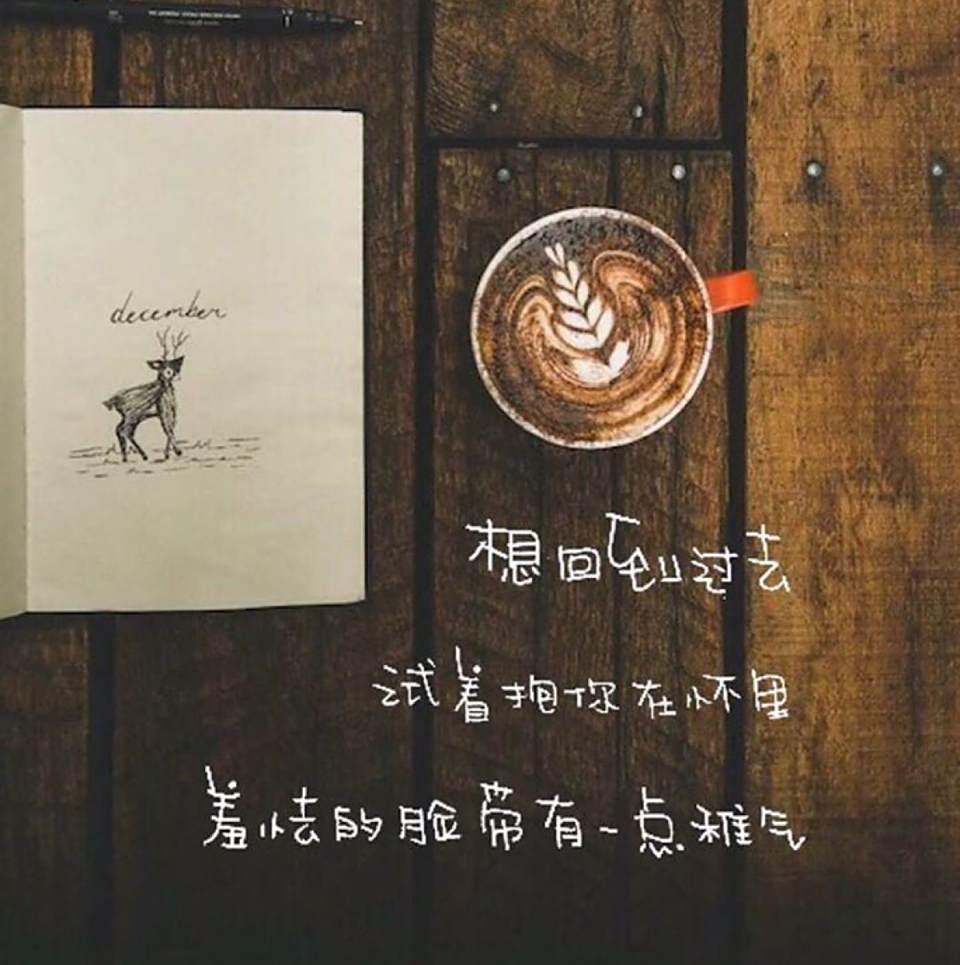 december
想回到过去
试着抱你在怀里
羞怯的脸带有一点稚气